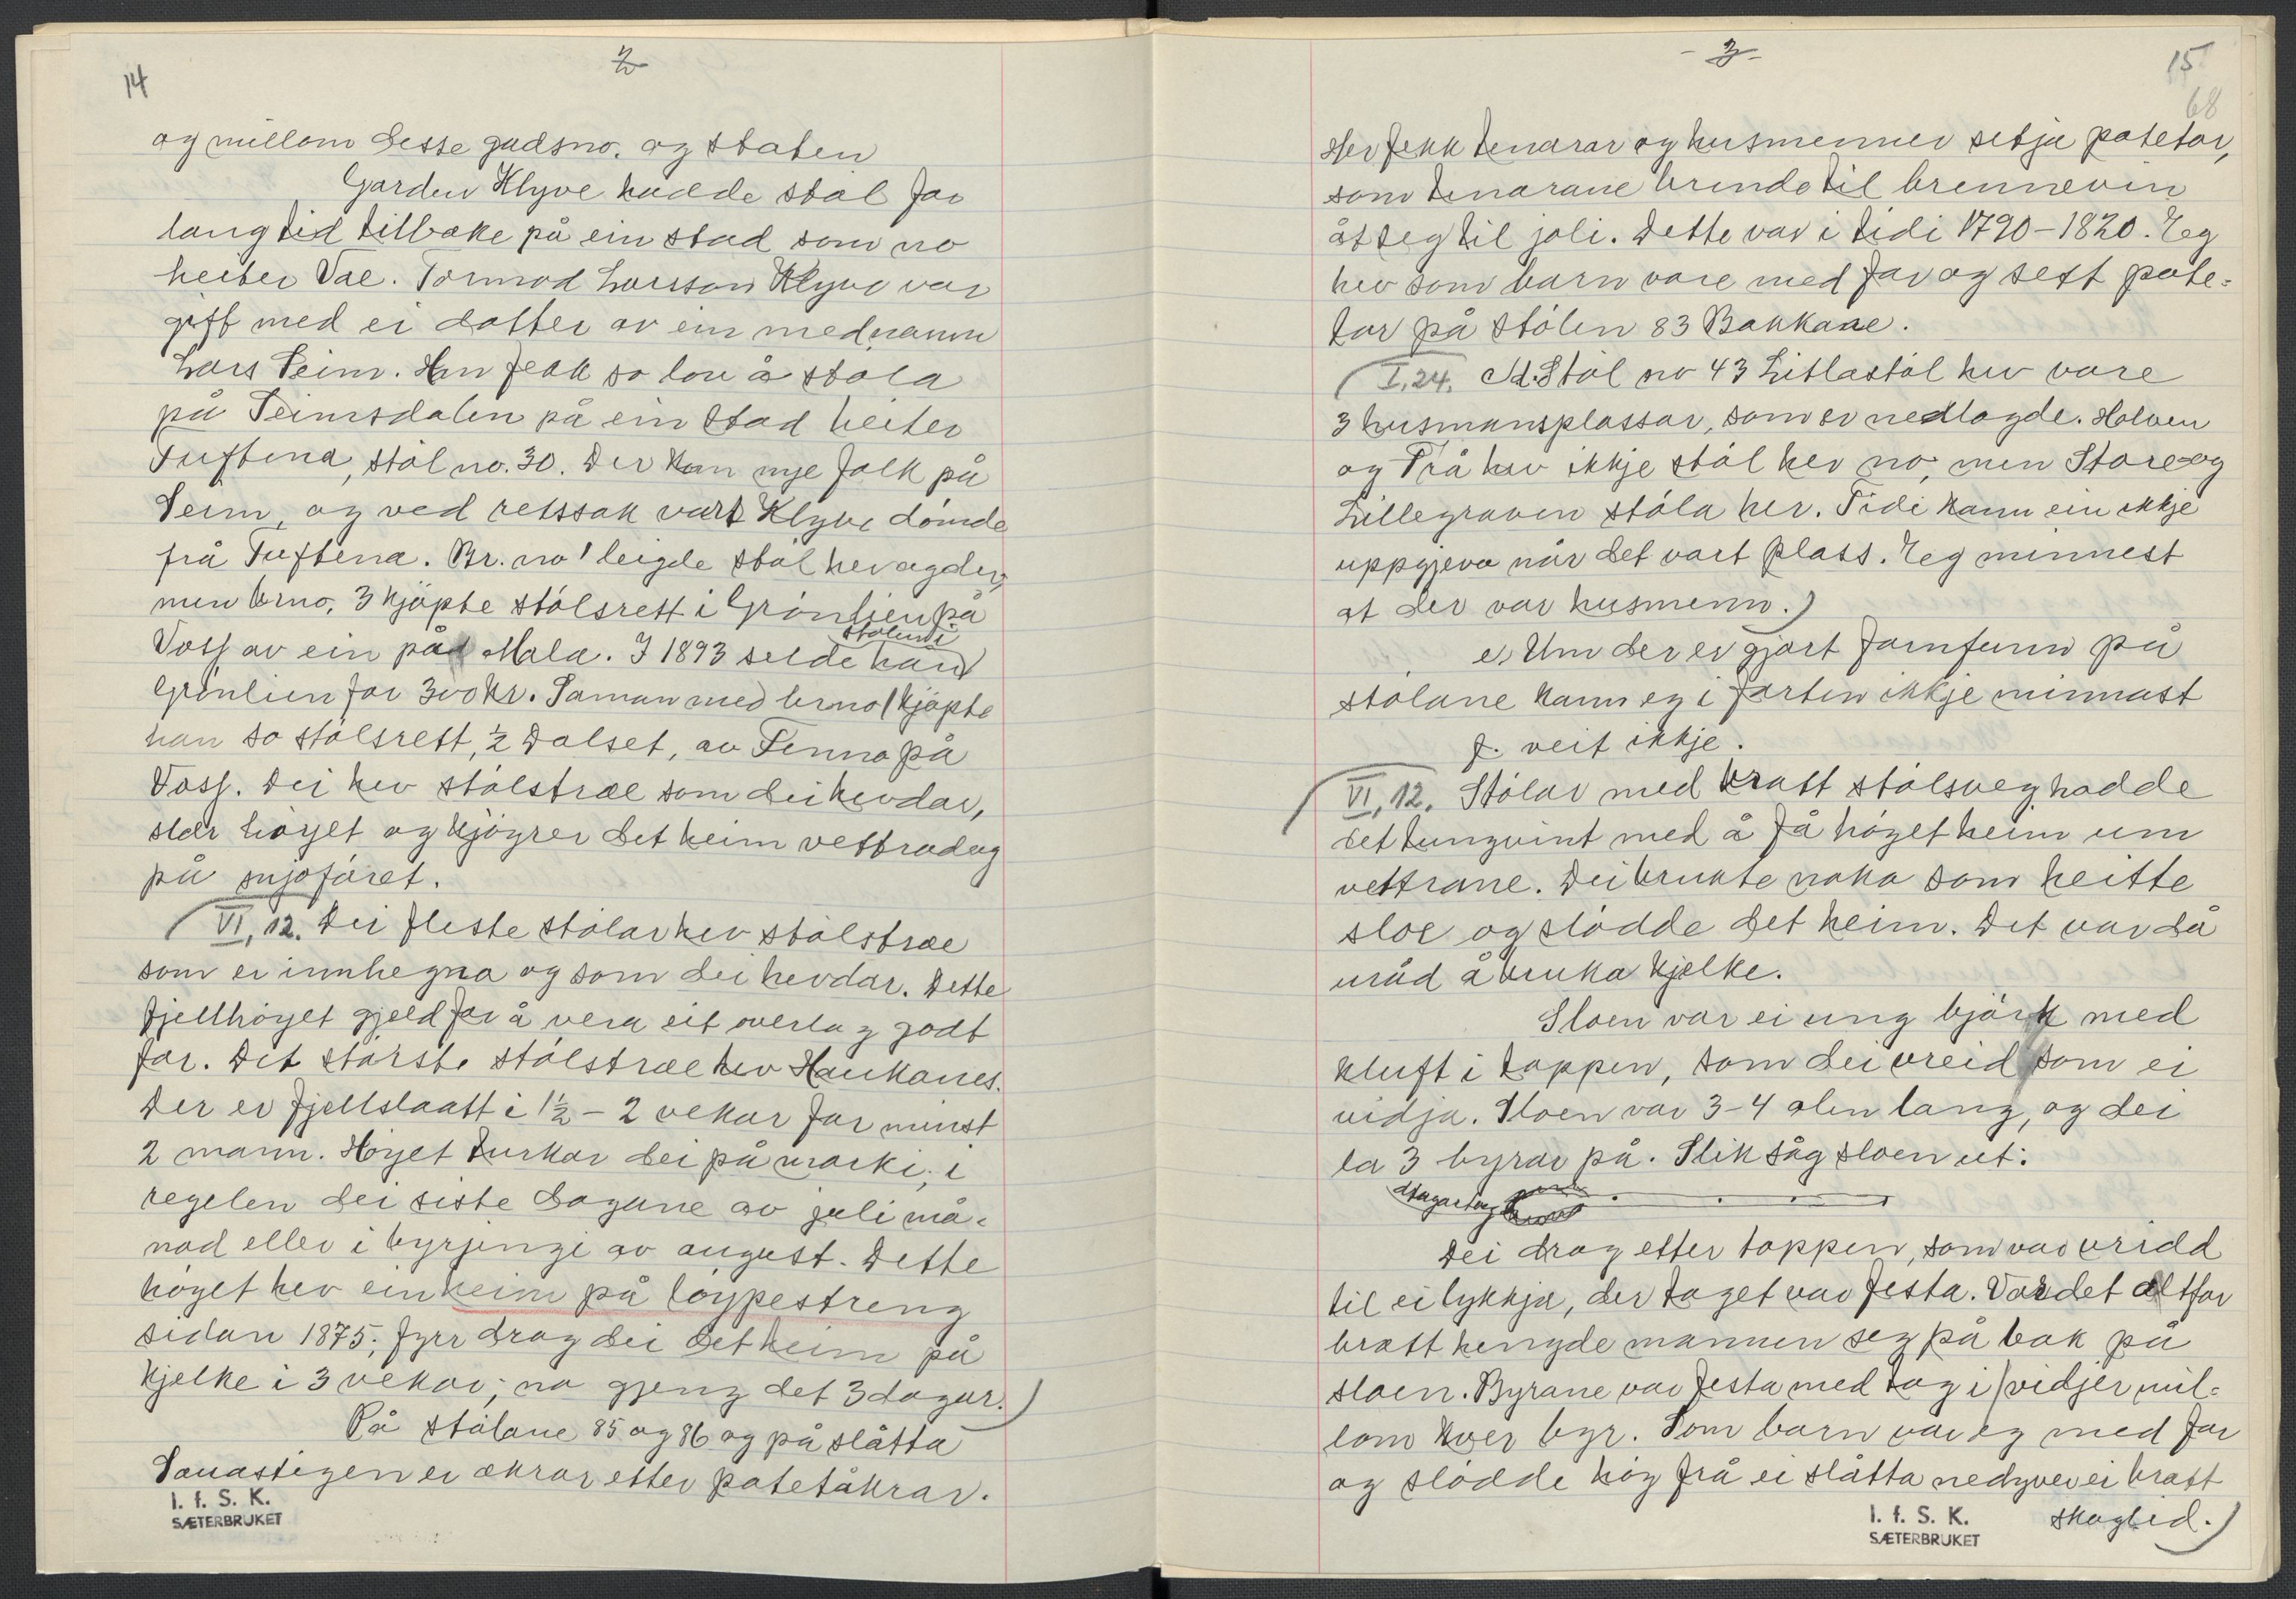 14
2
og millom desse gadsno. og staten
Garden Klyve hadde stöl for
lang tid tilbake på ein stad som no
heiter Vae. Tormod Larsson Klyve var
gift med ei dotter av ein mednamn
Lars Seim. Han fekk so lov å støla
på Seimsdalen på ein stad heiter
Tuftena, stöl no. 30. Der kom nye folk på
Seim, og ved rettssak vart Klyve dömde
frå Tuftena. Br. no 1 leigde stöl her og der,
men brno, 3 kjöpte stölsrett i Grönlien på
Voss av ein på Mala. I 1893 selde han stölen i
Grönlien for 300 kr. Saman med brno 1 kjöpte
han so stölsrett, ½ Dalset, av Finno på
Voss. Dei hev stölstræ som dei hevdar,
slår höyet og kjöyrer det heim vettradag
på snjoföret.
VI, 12. Dei fleste stölar hev stölstræ
som er innhegna og som dei hevdar. Dette
fjellhöyet gjeld for å vera eit overlag godt
for. Det största stölstræ hev Haukanes.
Der er fjellslaatt i 1½ - 2 vekar for minst
2 mann. Höyet turkar dei på marki; i
regelen dei siste dagane av juli må-
nad eller i byrjingi av august. Dette
höyet hev ein heim på löypestreng
sidan 1875; fyrr drog dei det heim på
kjelke i 3 vekar; no gjeng det 3 dagar.)
På stölane 85 og 86 og på slåtta
Sauastigen er åkrar etter potetåkrar.
I. f. S. K.
SÆTERBRUKET
- 3 -
15
68
Her fekk tenarar og husmenner setja poteter,
som tenarane brende til brennevin
åt seg til joli. Dette var i tidi 1790-1820. Eg
hev som barn vore med far og sett pote-
tor på stölen 83 Bakkane.
(I, 24. d. Stöl no 43 Litlastöl hev vore
3 husmansplassar, som er nedlagde. Holven
og Trå hev ikkje stöl her no, men Store- og
Lillegraven stöla her. Tidi kann ein ikkje
uppgjeva når det vart plass. Eg minnest
at der var husmenn.)
e, Um der er gjort fornfunn på
stölane kann eg i farten ikkje minnast
f. veit ikkje.
VI, 12. Stölar med bratt stölsveg hadde
det tungvint med å få höyet heim um
vettrane. Dei brukte noko som heitte
sloe og slödde det heim. Det var då
uråd å bruka kjelke.
Sloen var ei ung björk med
kluft i toppen, som dei vreid som ei
vidja. Sloen var 3-4 alen lang, og dei
la 3 byrar på. Slik såg sloen ut:
dragartog
Dei drog etter toppen, som var vridd
til ei lykkja, der toget var festa. Var det altfor
bratt hengde mannen seg på bak på
sloen. Byrane var festa med tog i vidjer mil-
lom kver byr. Som barn var eg med far
og slödde höy frå ei slåtta nedyver ei bratt
skoglid.)
I. f. S. K.
SÆTERBRUKET